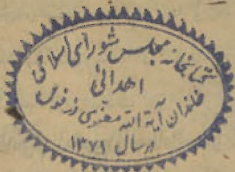 کتابخانه مجلس شورای اسلامی
اهدائی
خاندان آیة الله مقدسی دزفول
در سال ۱۳۷۱